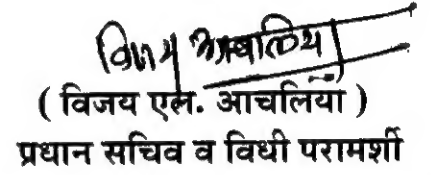 विजय आचलिया
( विजय एल. आचलिया )
प्रधान सचिव व विधी परामर्शी